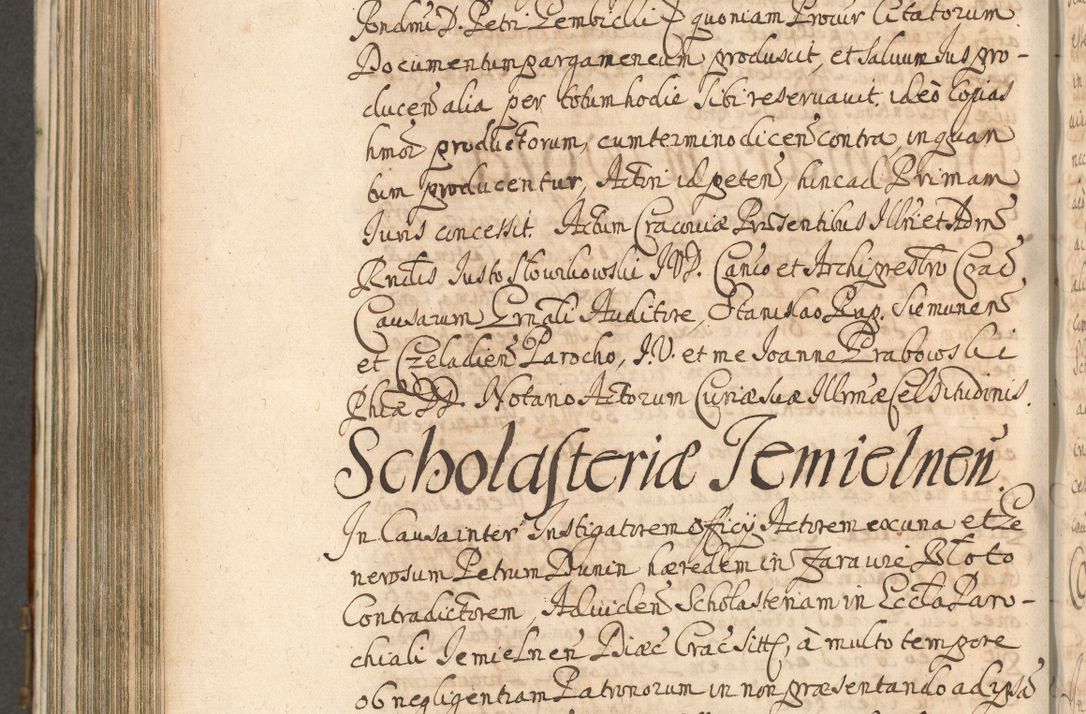 Pondmi D. Petri Lembicki Et quoniam Procur Citatorum
Documentum pargameneum produxit, et salvum Jus pro-
ducen alia per totum hodie sibi reservavit, ideò Copias
hmoi productorum, cum termino dicen contra, in quan
tum producentur, Actori id peten, hinc ad Primam
Juris concessit. Actum Cracoviæ Præsentibus Illri et Adm
Rndis Justo Słowikowski J.V.D. Canco et Archipresbro Crac
Causarum Grnali Auditore, Stanislao Rap. Siemunen
et Czeladien Parocho, J.V. et me Joanne Grabowski
Phiæ DD. Notario Actorum Curiæ suæ Illrmæ Celsitudinis.
Scholasteriæ Jemielnen
In Causa inter Instigatorem officij Actorem ex una et Ge
nerosum Petrum Dunin hæredem in Jaravie Bloto
Contradictorem, Ad viden Scholasteriam in Eccla Paro-
chiali Jemielnen Diæc Crac sitt, à multo tempore
ob negligentiam Patronorum in non præsentando ad ipsã